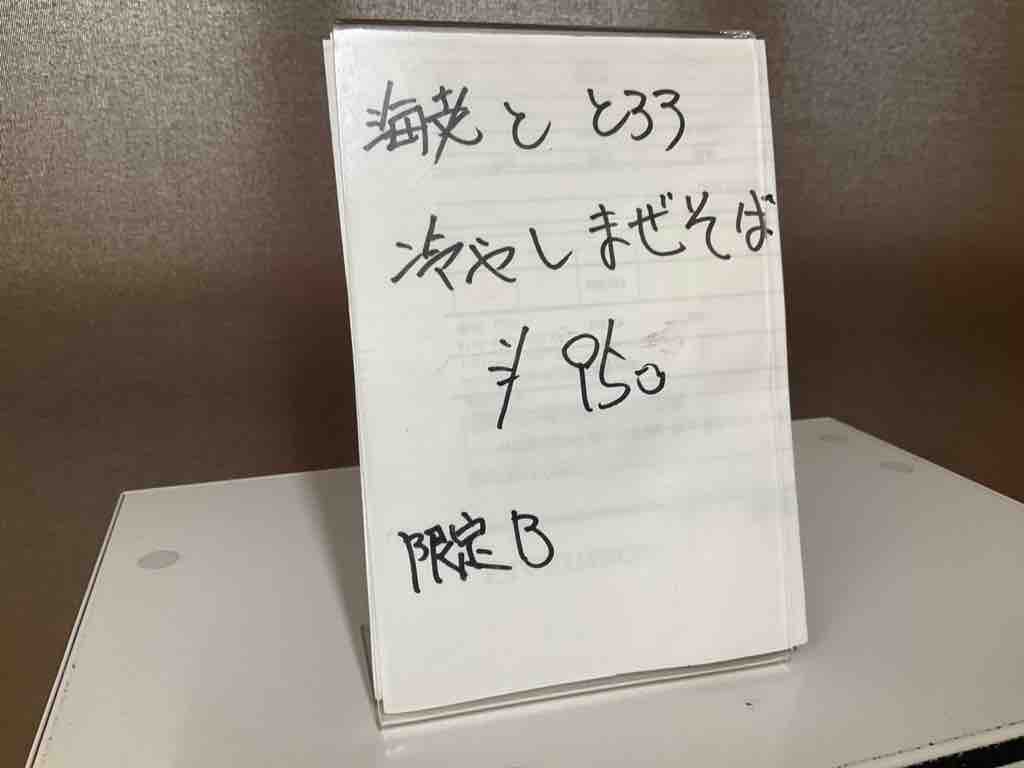 海老と とろろ
冷やしまぜそば
¥950
限定B